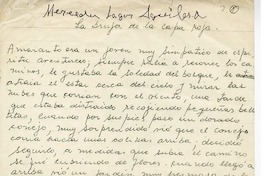 Mercedes Lagos Aguilera
La bruja de la capa roja.
Amaranto era un joven muy simpático de espí-
ritu aventurero, siempre salía a recorrer los ca
minos, le gustaba la soledad del bosque, le
el estar cerca del cielo y mirar las
nubes que corrían con el viento, una tarde
que estaba distraído recogiendo pequeñas bello
titas, cuando por supuesto pasó un dorado
conejo, muy sorprendido vió que el conejo
corría hacia unos cerros arriba, decidió
seguirlo, a medida que subía, el camino
se iba cubriendo de flores, cuando llegó a
arriba vió un jardín muy hermoso